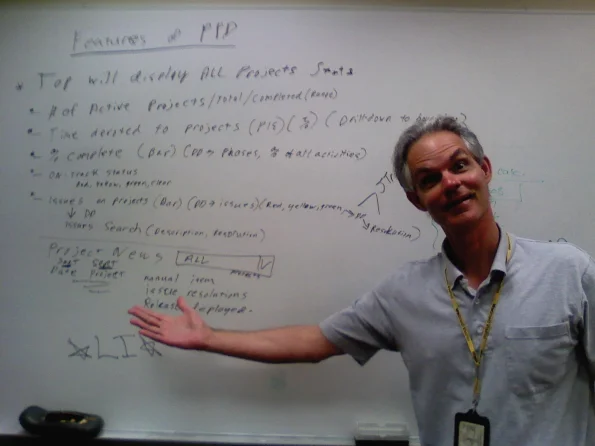 Features of PPD
* Top will display ALL Projects Stats
*- # of Active Projects/Total/Completed (Range)
*- Time devoted to projects (PIE) (Drilldown to
*- % Complete (Bar) (DD → Phases, % of all activities)
*- On-Track Status
Red, Yellow, green, clear
*- Issues on projects (Bar) (DD → issues) (Red, yellow, green, → Resolution)
↓ DD
Issues Search (Description, Resolution)
Project News ALL
SORT SORT
Date Project manual item
issue resolutions
Release Deployed.
LI